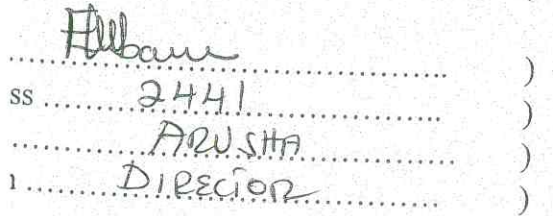 .......................................... )
ss ........2441.................. )
............ARUSHA............... )
ı........DIRECTOR............... )